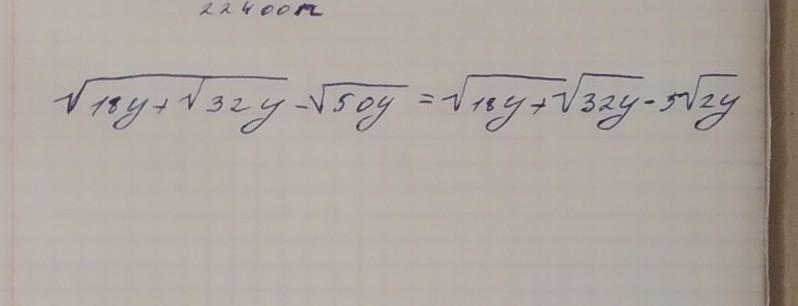 22400п
√(18y + √(32y)) - √(50y) = √(18y + √(32y)) - 5√(2y)